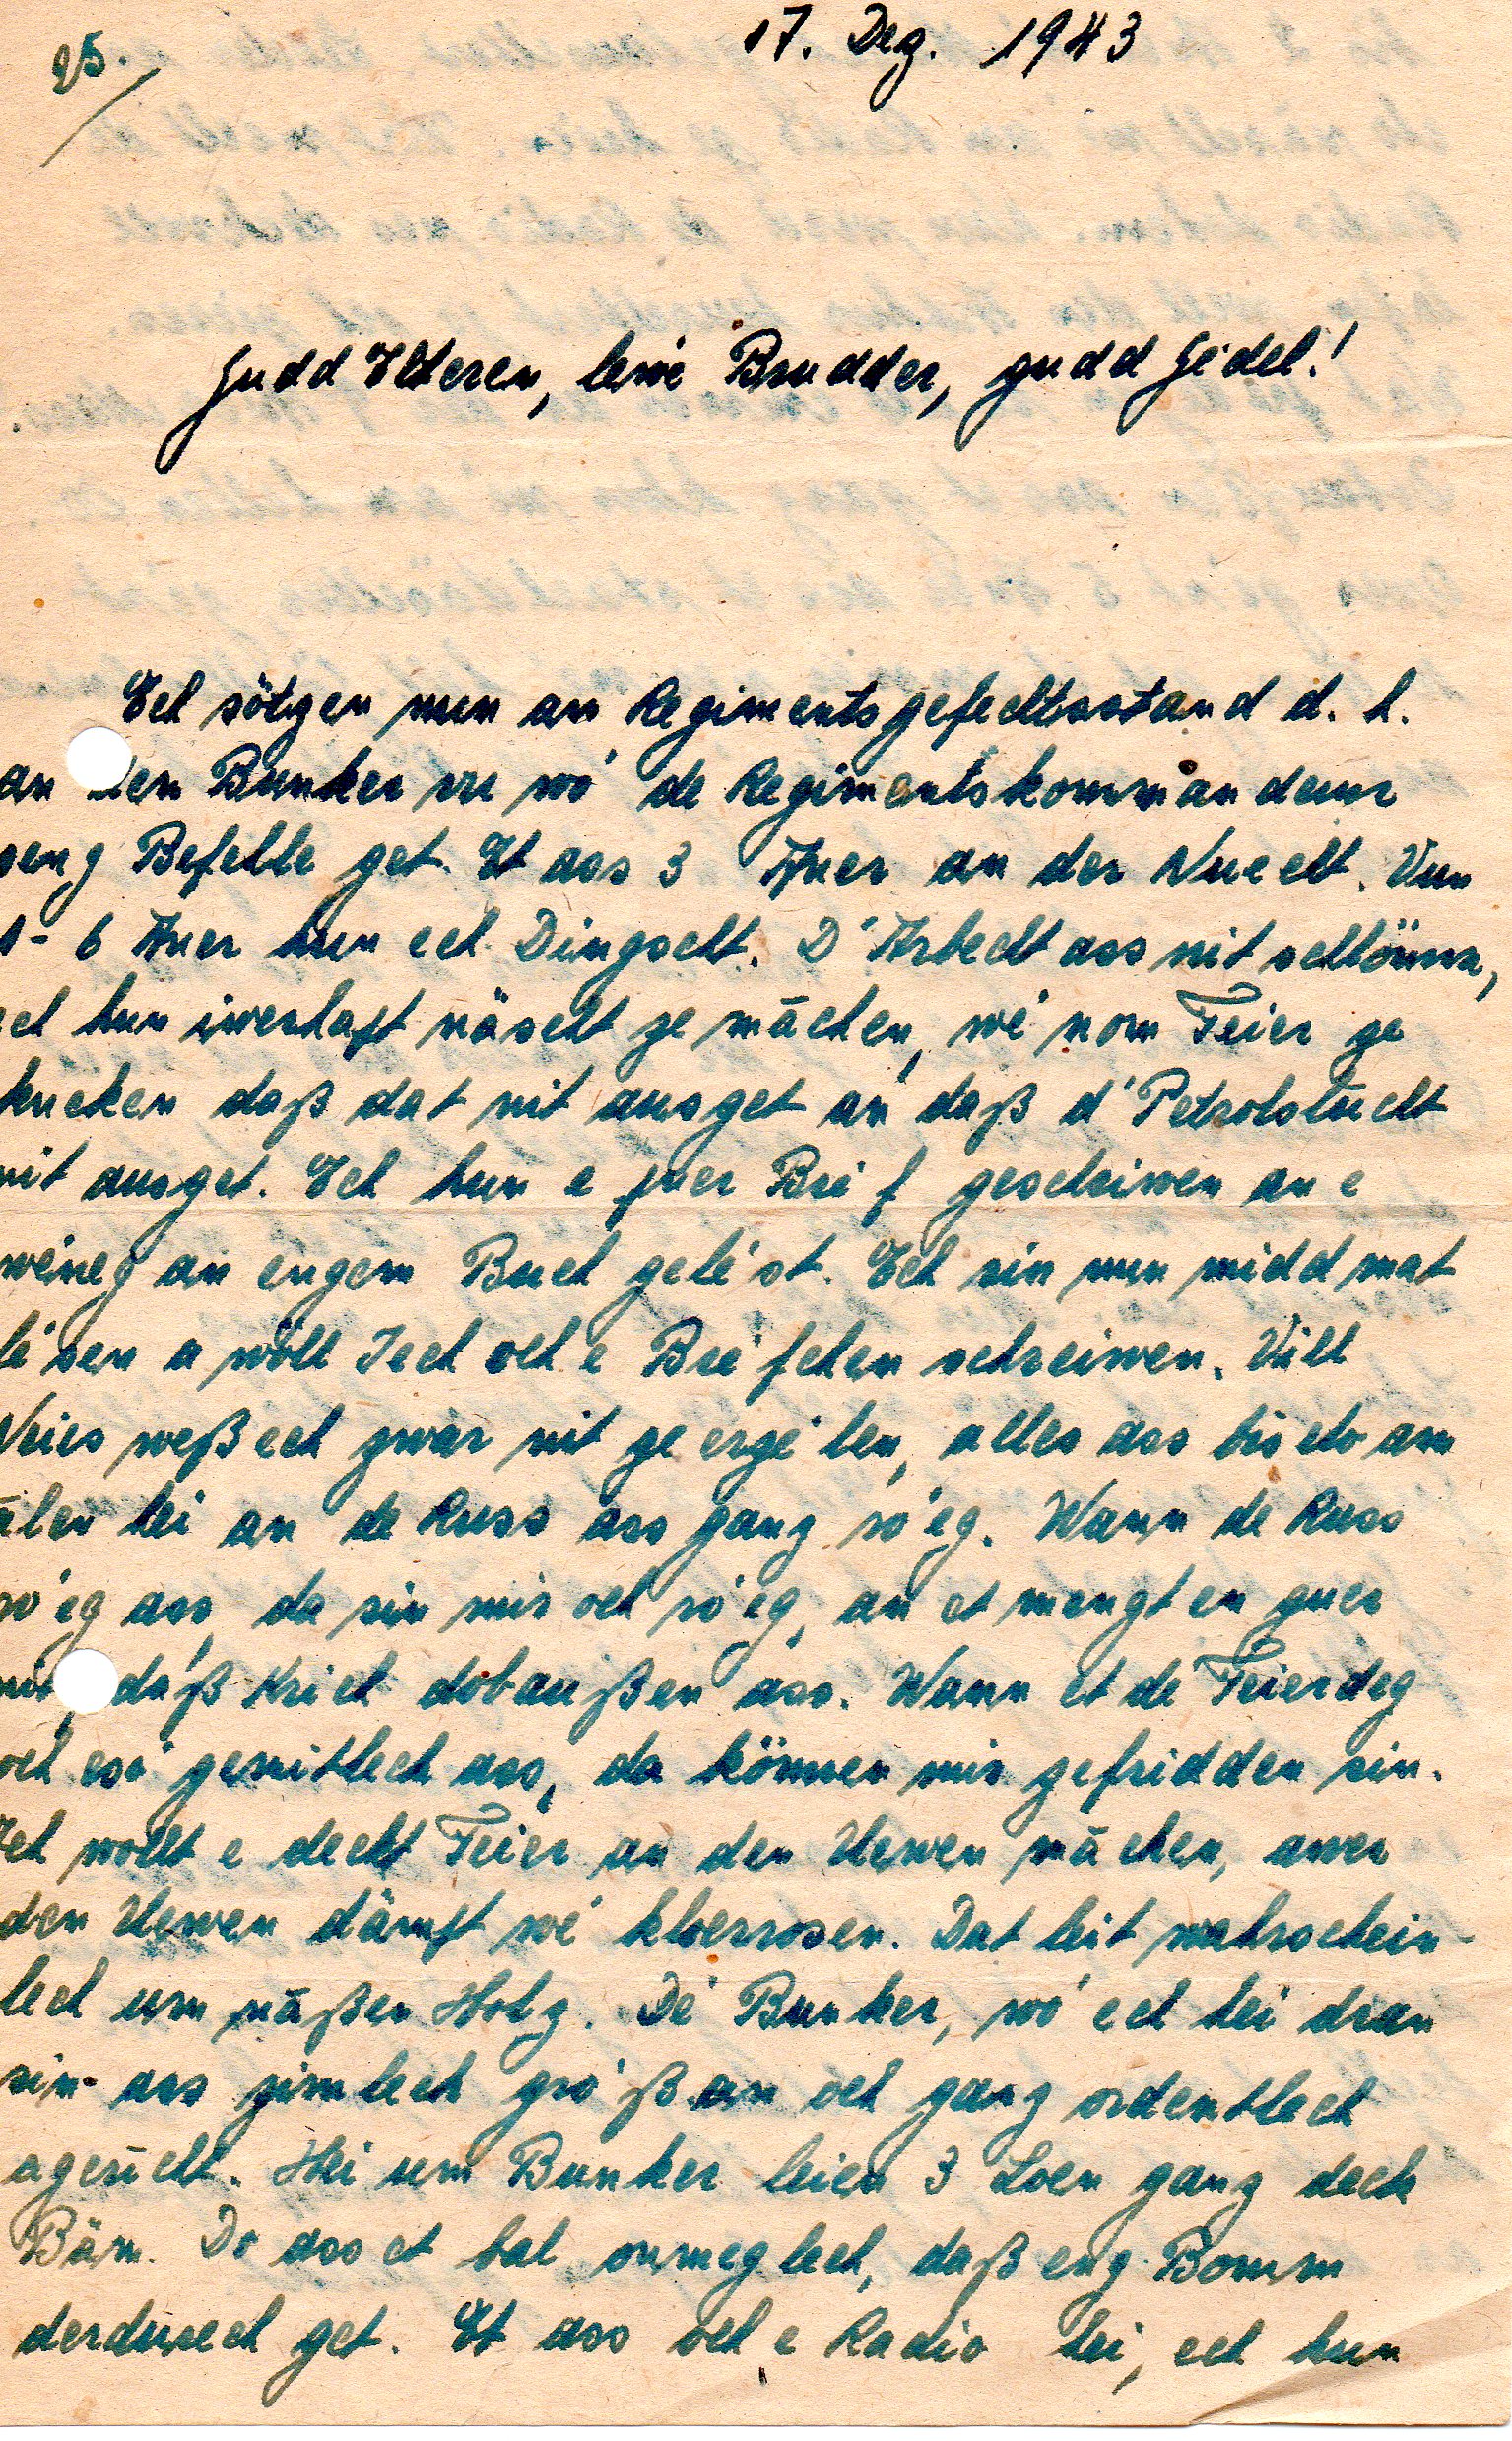 25.
17. Dez. 1943
Gudd Elteren, léwe Brudder, gudd Gédel!
Ech sötzen nun am Regimentsgefechtsstand d. h.
an den Bunker vu wó de Regimentskommandeur
seng Befelle get. Et ass 3 Auer an der Nuecht. Vun
1-6 Auer hun ech Dingscht. D'Arbecht ass nit schlömm,
ech hun iwerhaft näscht ze mächen, wé nom Feier ze
kucken daß dat nit ausget an daß d'Petrolslucht
nit ausget. Ech hun e puer Bréf geschriwen an e
wéneg an engem Buch gelést. Ech sin nun midd mat
lésen a wöll Iech och e Bréfchen schreiwen. Vill
Neies weß ech zwar nit ze erzélen, alles ass bis elo am
älen hei an de Russ ass ganz róeg. Wann de Russ
róeg ass, da sin mir och róeg, an et mengt en guer
nit, daß Krich dobaußen ass. Wann et de Feierdeg
och esó gemitlech ass, da können mir zefridden sin.
Ech wollt e decht Feier an den Uewen mächen, awer
den Uewen dämft wé kloerrosen. Dat leit wahrschein-
lech um näßen Holz. Dé Bunker, wó ech hei dran
sin ass zimlech gróß an och ganz ordentlech
agerücht. Hei um Bunker leien 3 Loen ganz deck
Bäm. Do ass et bal onmeglech, daß eng Bomm
derdurech get. Et ass och e Radio hei, ech hun